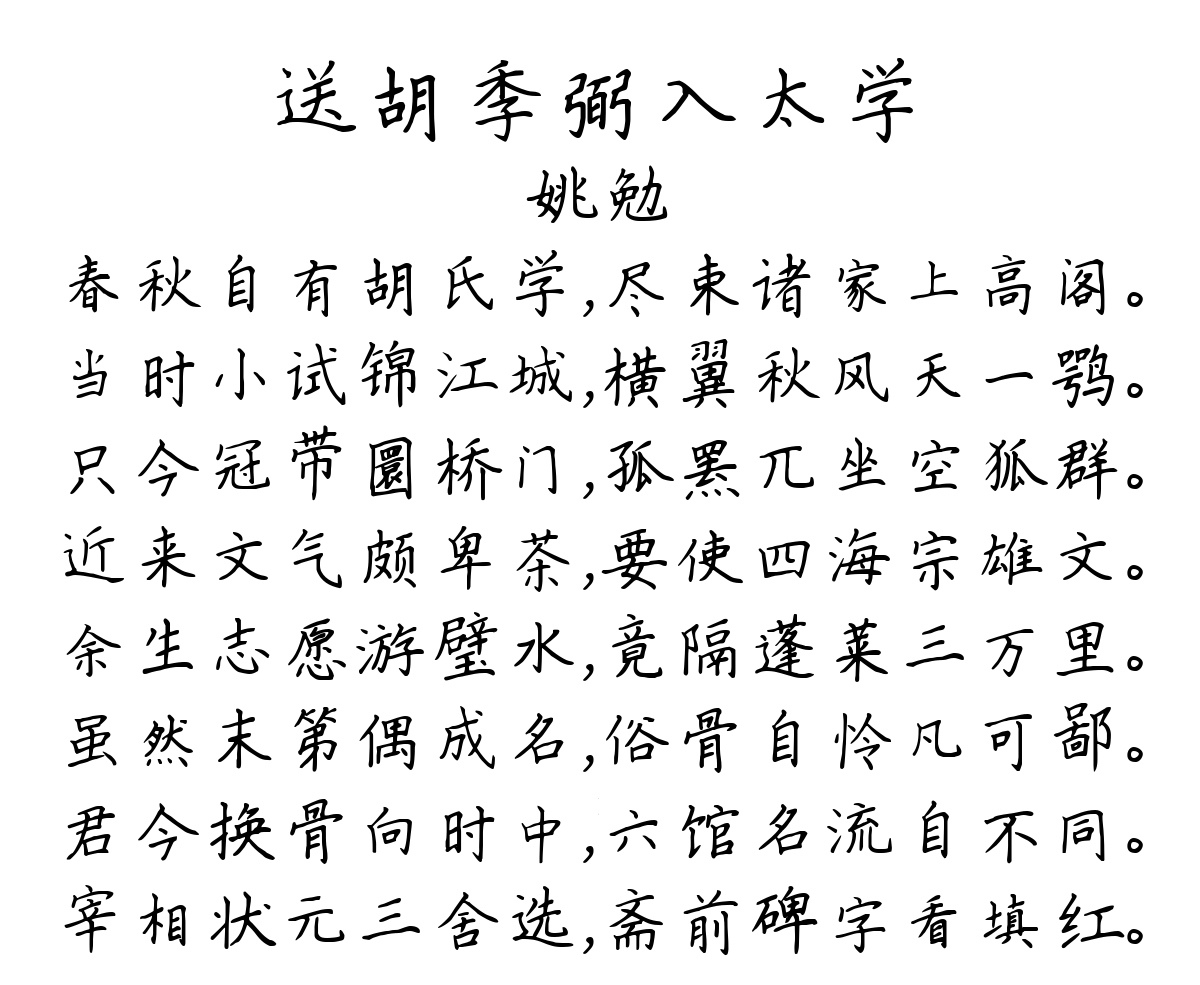 送胡季弼入太学
姚勉
春秋自有胡氏学,尽束诸家上高阁。
当时小试锦江城,横翼秋风天一鹗。
只今冠带圜桥门,孤罴兀坐空狐群。
近来文气颇卑茶,要使四海宗雄文。
余生志愿游璧水,竟隔蓬莱三万里。
虽然末第偶成名,俗骨自怜凡可鄙。
君今换骨向时中,六馆名流自不同。
宰相状元三舍选,斋前碑字看填红。